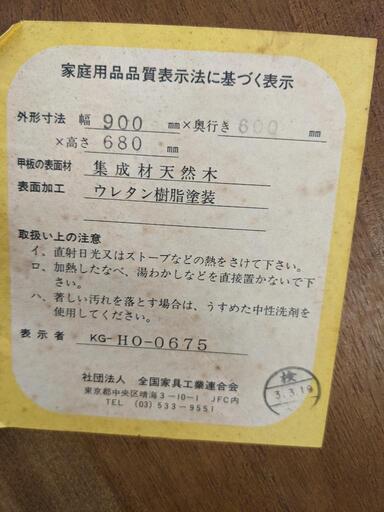 家庭用品品質表示法に基づく表示
外形寸法 幅 900 mm×奥行き 600 mm
×高さ 680 mm
甲板の表面材 集成材天然木
表面加工 ウレタン樹脂塗装
取扱い上の注意
イ、直射日光又はストーブなどの熱をさけて下さい。
ロ、加熱したなべ、湯わかしなどを直接置かないで下
さい。
ハ、著しい汚れを落とす場合は、うすめた中性洗剤を
使用してください。
表示者 KG-HO-0675
社団法人 全国家具工業連合会
東京都中央区晴海3-10-1 JFC内
TEL (03)-533-9551
検
3.3.19